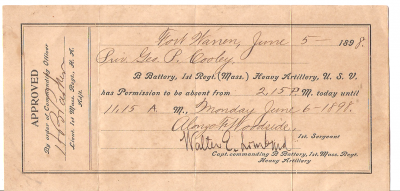 Fort Warren, June 5- 1898.
Priv. Geo P. Cooley,
B Battery, 1st Regt. (Mass.) Heavy Artillery, U. S. V.
has Permission to be absent from 2.15 P. M. today until
11.15 A M., Monday June 6-1898.
Alonzo F. Woodside.
1st Sergeant
Walter E. Lombard
Capt. commanding B Battery, 1st Mass. Regt.
Heavy Artillery
APPROVED
By order of Commanding Officer
Lieut. 1st Mass. Regt. H. A.
Adjt.